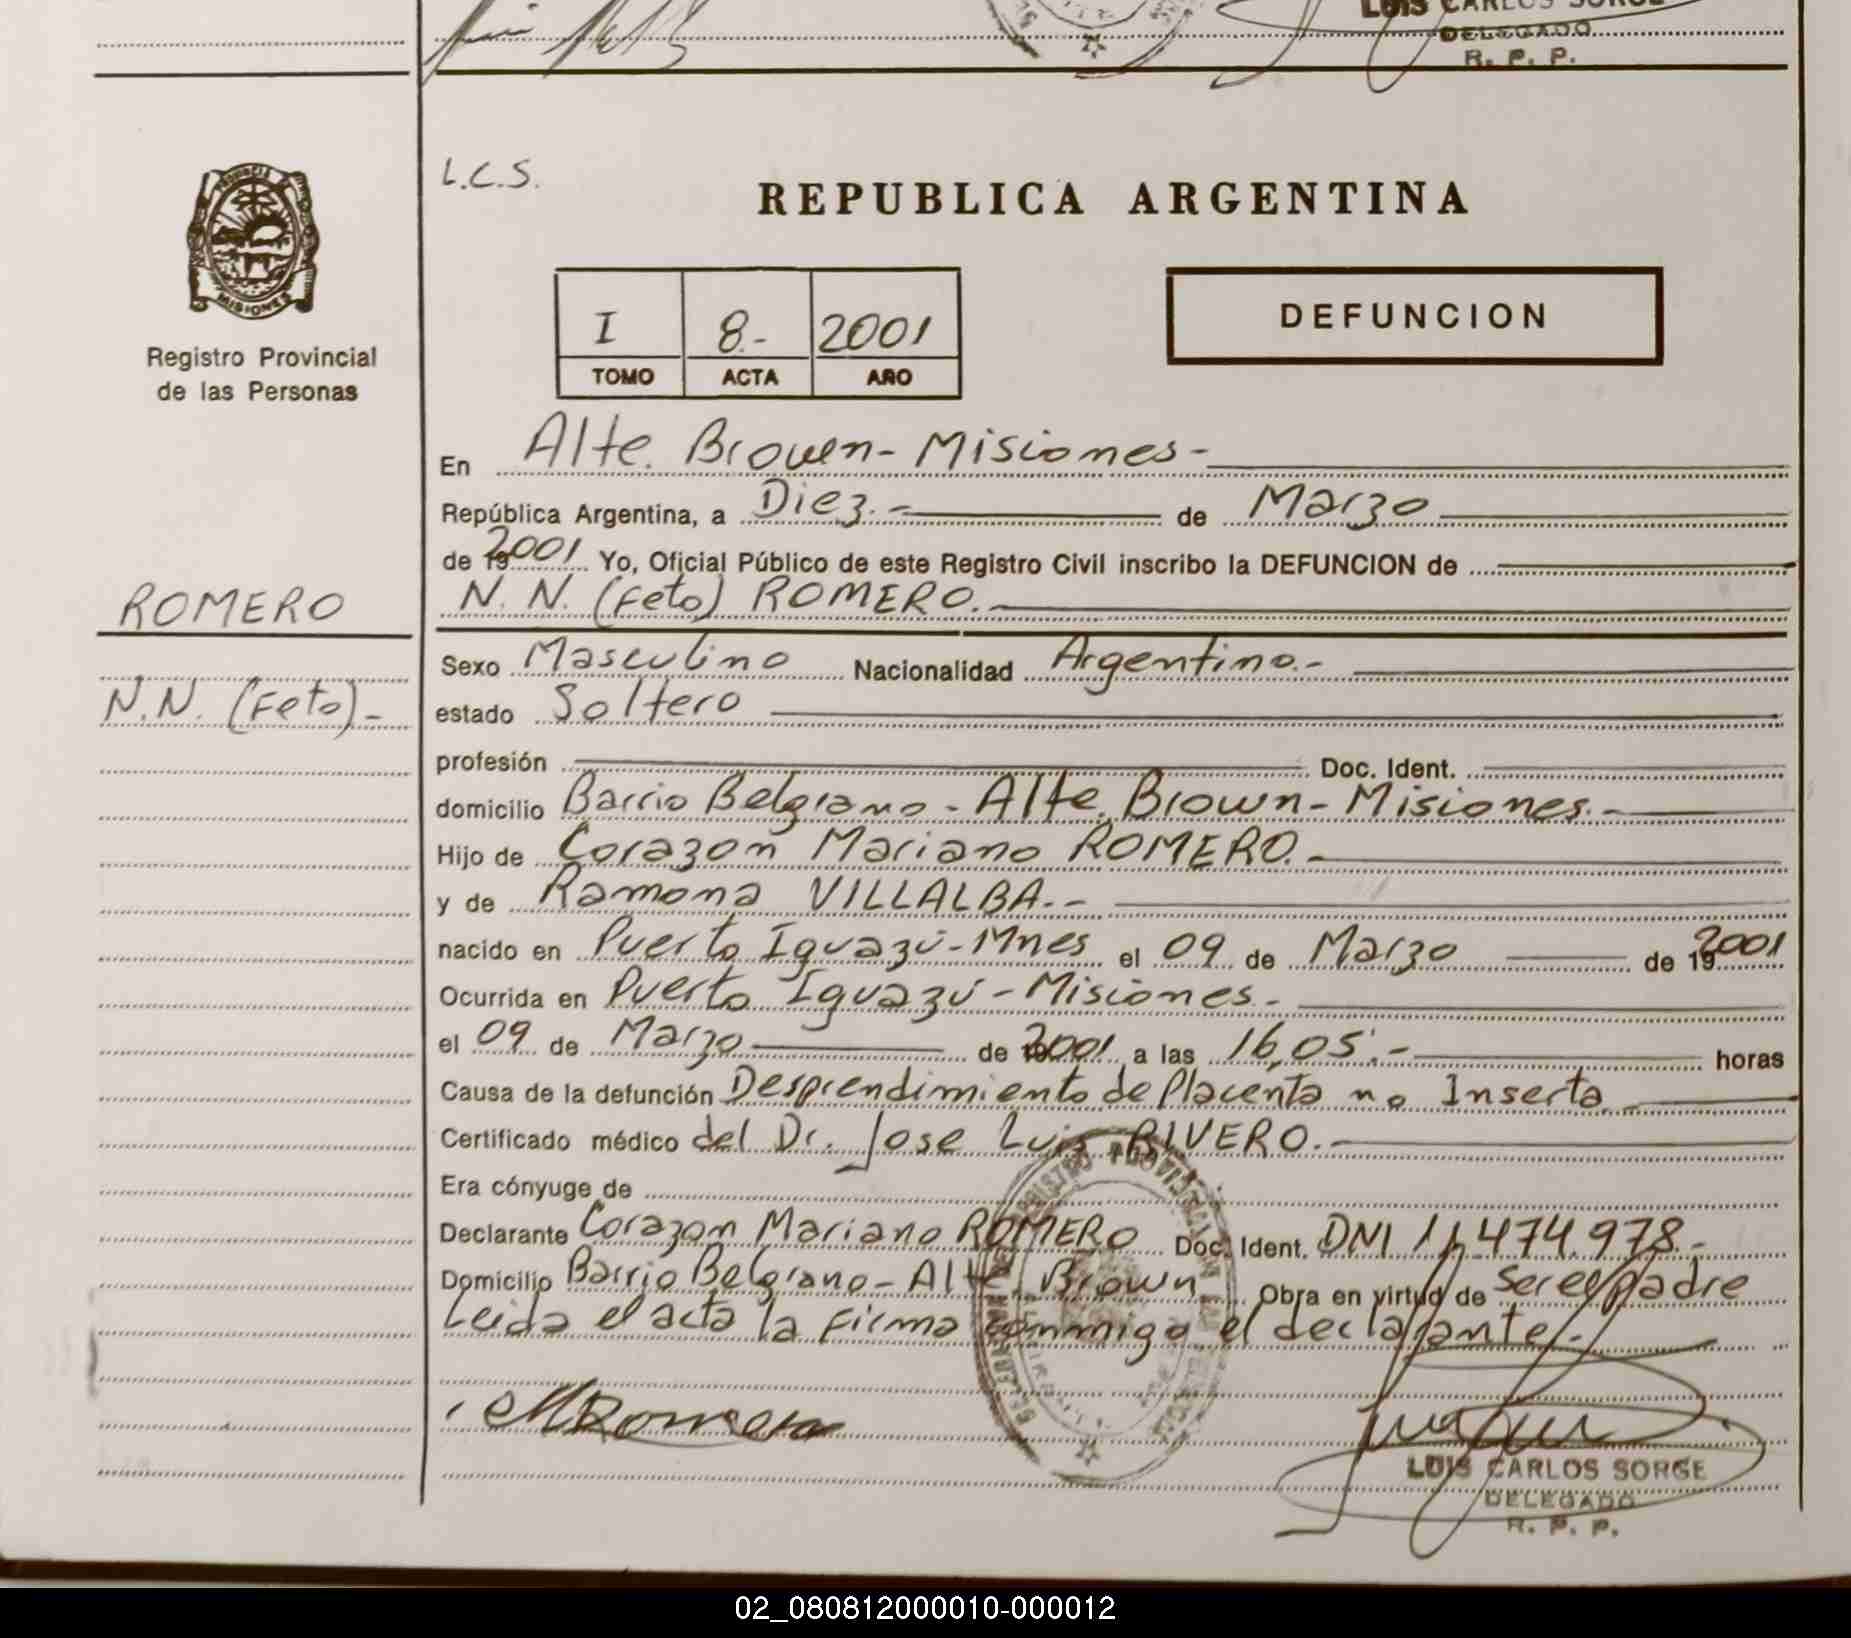 LUIS CARLOS SORGE
DELEGADO
R. P. P.
L.C.S.
REPUBLICA ARGENTINA
PROVINCIA
MISIONES
Registro Provincial
de las Personas
I 8.- 2001
TOMO ACTA AÑO
DEFUNCION
En Alte. Brown - Misiones -
República Argentina, a Diez.- de Marzo
de 2001 Yo, Oficial Público de este Registro Civil inscribo la DEFUNCION de
ROMERO
N. N. (Feto) ROMERO.
Sexo Masculino Nacionalidad Argentino.-
N.N. (Feto)-
estado Soltero
profesión Doc. Ident.
domicilio Barrio Belgrano - Alte. Brown - Misiones.
Hijo de Corazon Mariano ROMERO.
y de Ramona VILLALBA.-
nacido en Puerto Iguazú - Mnes el 09 de Marzo de 192001
Ocurrida en Puerto Iguazú - Misiones.
el 09 de Marzo de 2001 a las 16,05.- horas
Causa de la defunción Desprendimiento de Placenta no Inserta
Certificado médico del Dr. Jose Luis RIVERO.
Era cónyuge de
Declarante Corazon Mariano ROMERO Doc. Ident. DNI 474.978.-
Domicilio Barrio Belgrano - Alte. Brown Obra en virtud de Ser el Padre
Leida el acta la Firma conmmigo el declarante.-
MRomero
LUIS CARLOS SORGE
DELEGADO
R. P. P.
02_080812000010-000012